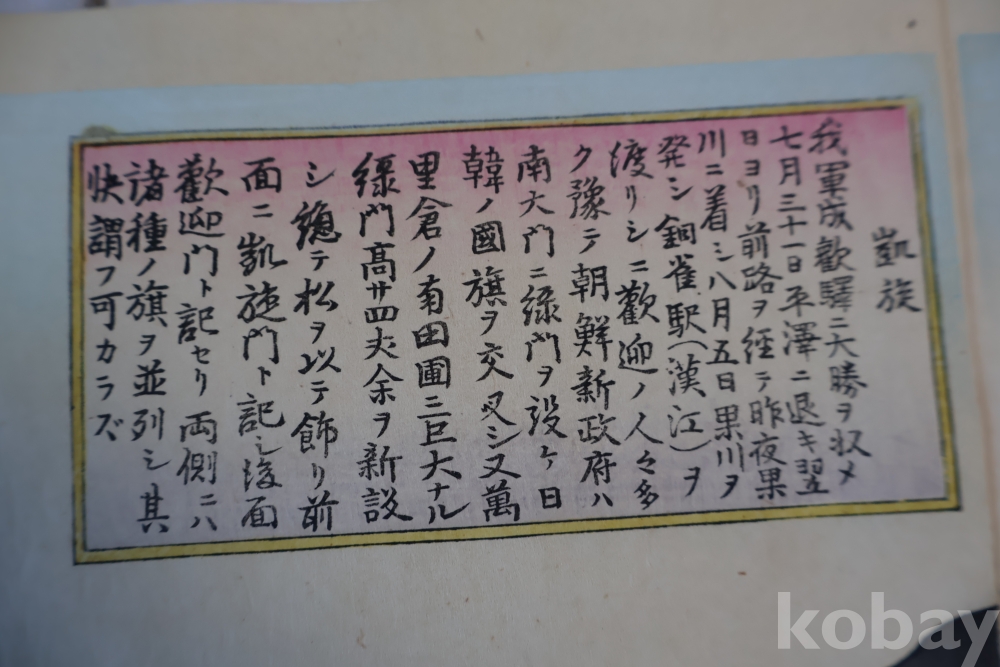 凱旋
我軍成歓驛ニ大勝ヲ収メ
七月三十一日平澤ニ退キ翌
日ヨリ前路ヲ経テ昨夜果
川ニ着シ八月五日果川ヲ
発シ銅雀駅(漢江)ヲ
渡リシニ歡迎ノ人々多
ク豫テ朝鮮新政府ハ
南大門ニ緑門ヲ設ケ日
韓ノ國旗ヲ交叉シ又萬
里倉ノ南田圃ニ巨大ナル
緑門高廿四尺余ヲ新設
シ總テ松ヲ以テ飾リ前
面ニ凱旋門ト記シ後面
歡迎門ト記セリ両側ニハ
諸種ノ旗ヲ並列シ其
快謂フ可カラズ
kobay